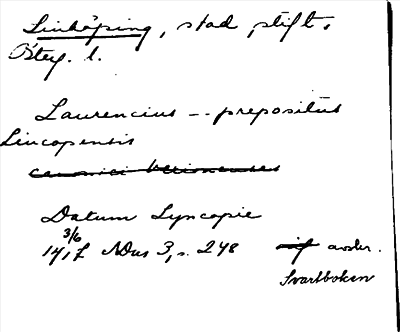 Linköping, stad, stift,
Östg. l.
Laurencius -- prepositus
Lincopensis
canonici
Datum Lyncopie
3/6
NDus 3, s. 248 avskr.
Svartboken